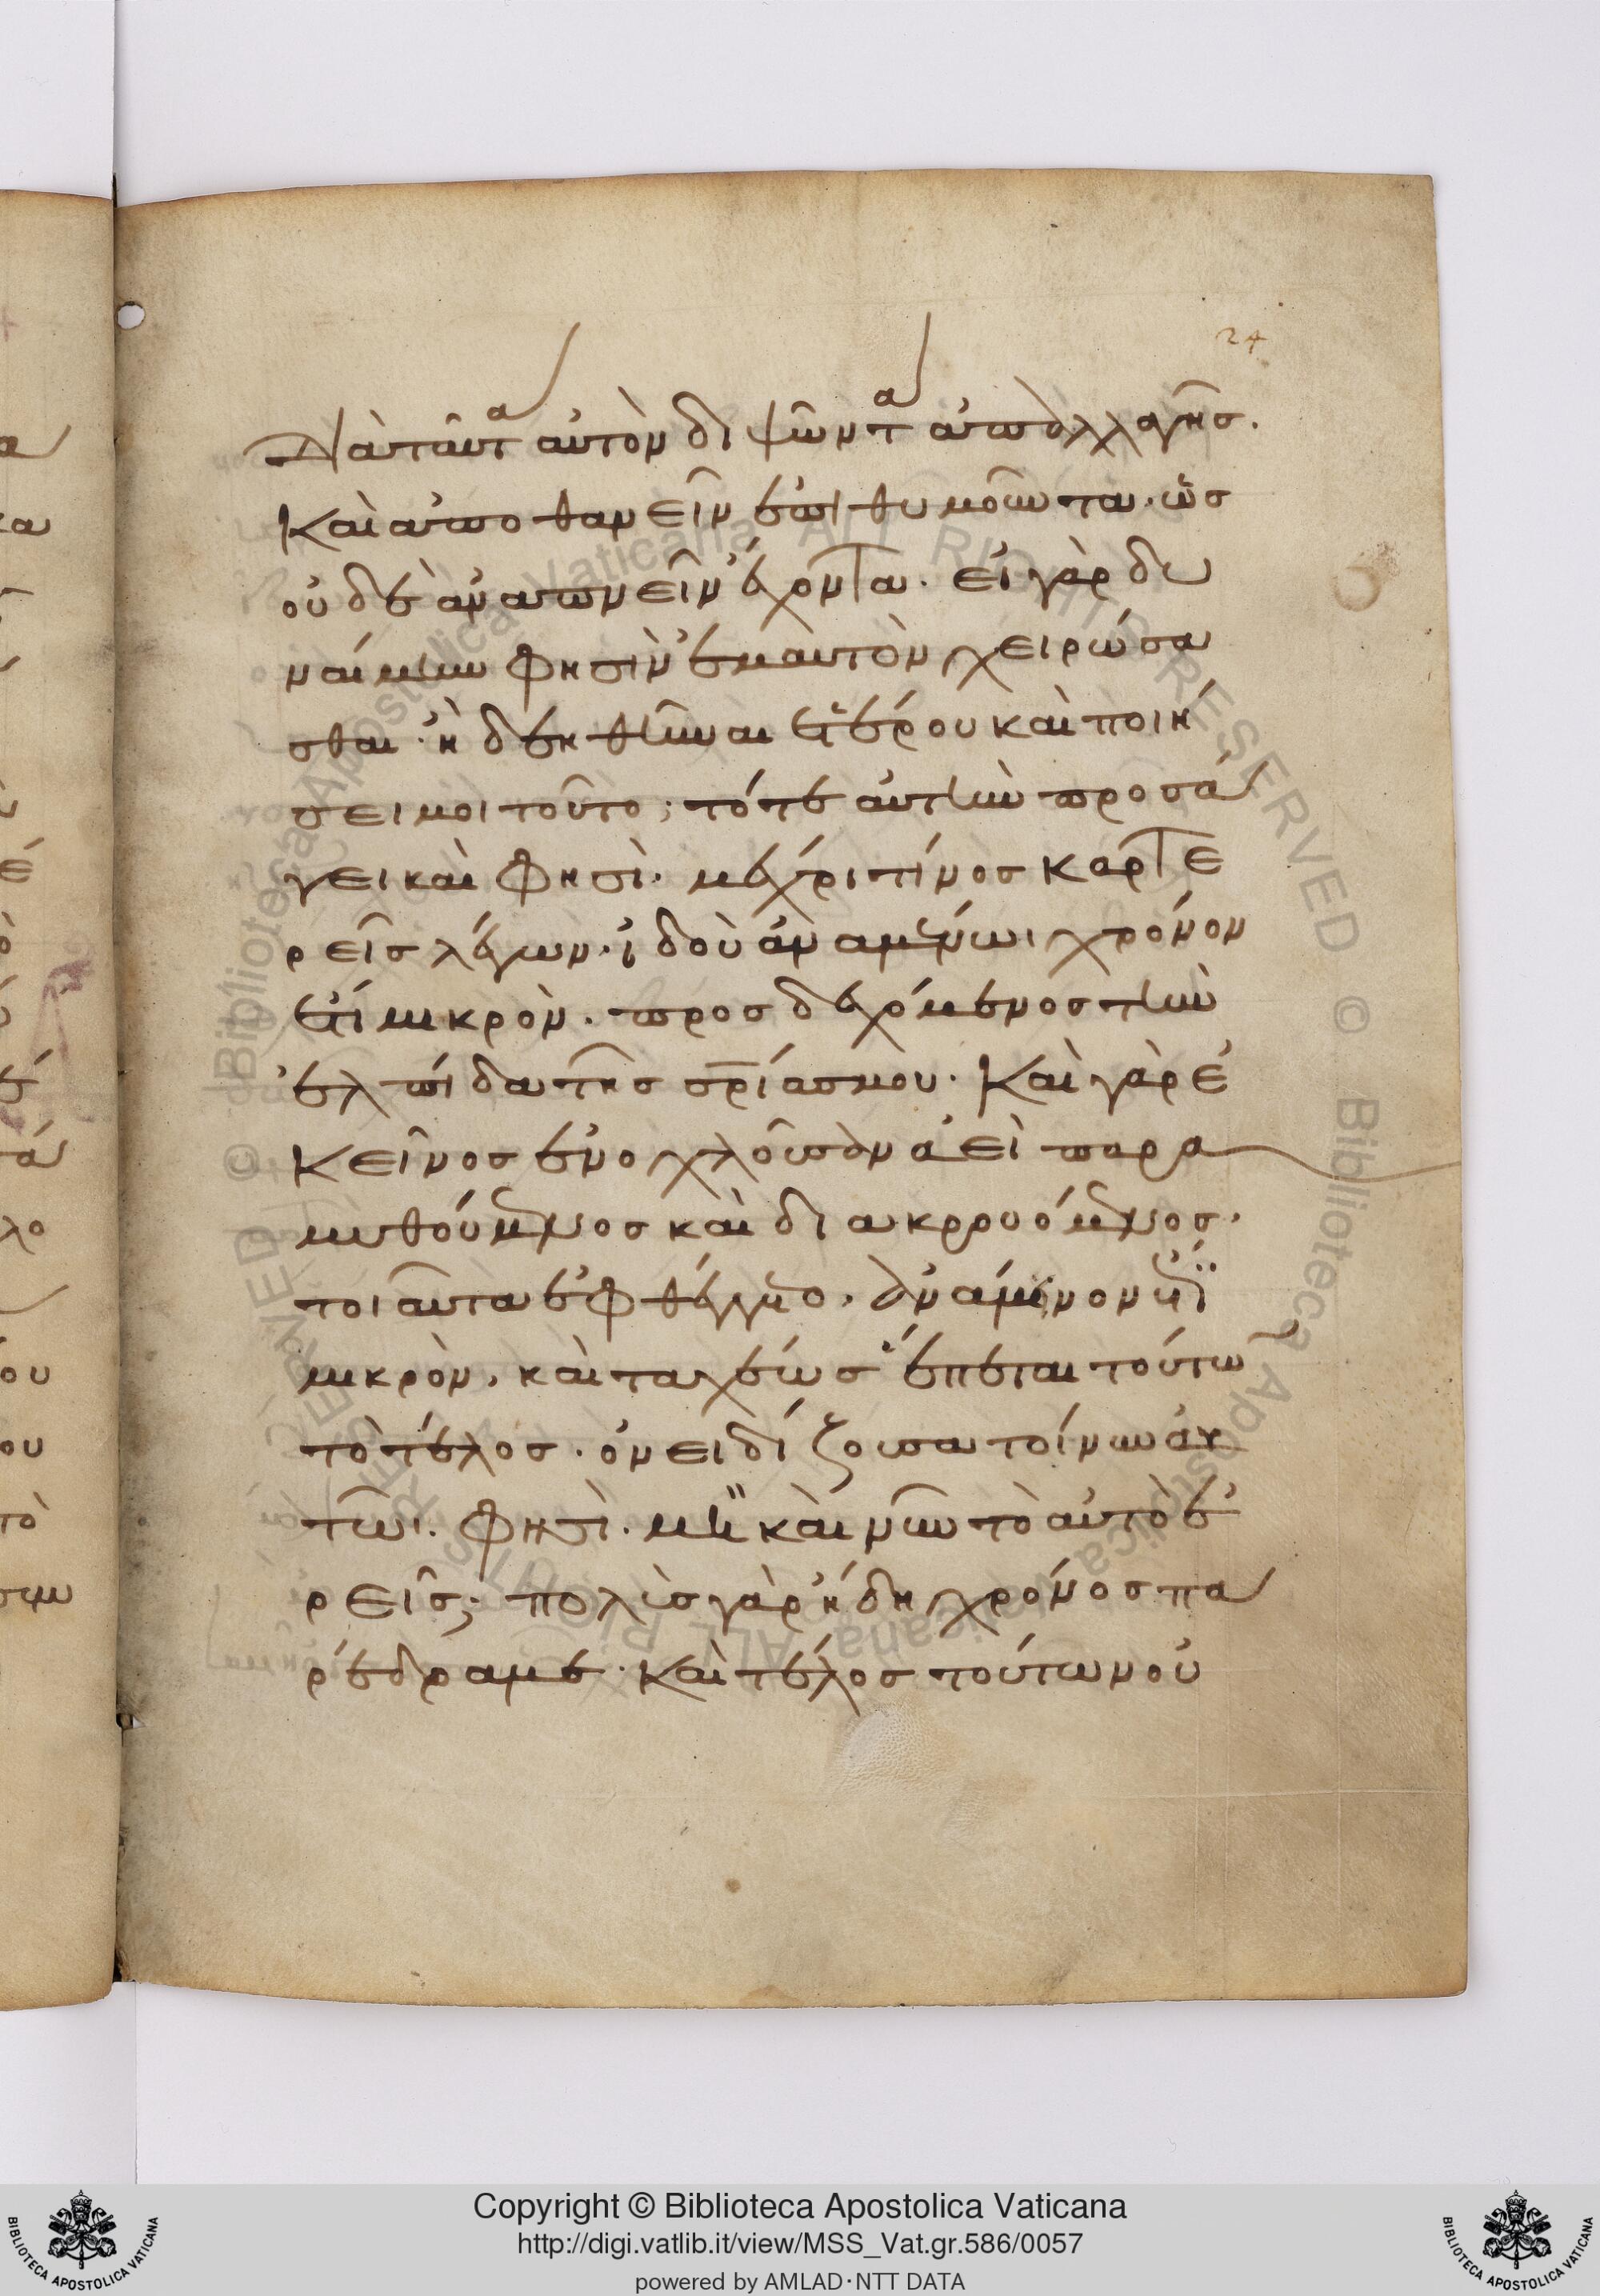 24
Διὰ ταῦτα αὐτὸν διψῶντα ἀπαλλαγῆσ.
Καὶ ἀποθανεῖν ἐπιθυμοῦντα. ὡσ
οὐδὲ ἀναπνεῖν ἔχοντα. εἰ γὰρ δυ
ναίμην φησὶν ἐμαυτὸν χειρώσα
σθαι. ἢ δεηθῆναι ἑτέρου καὶ ποιή
σει μοι τοῦτο; τότε αὐτὴν προσά
γει καὶ φησὶ. μέχρι τίνοσ καρτε
ρεῖσ λέγων. ἰδοὺ ἀναμένωι χρόνον
ἔτι μικρὸν. προσδεχόμενοσ τὴν
ἐλπίδα τῆσ σρίασ μου. Καὶ γὰρ ἐ
κεῖνοσ ἐνοχλοῦσαν ἀεὶ παρα
μυθούμενοσ καὶ διακρουόμενοσ.
τοιαῦτα ἐφθέγγετο. ἀνάμεινον ἔτι
μικρὸν. καὶ ταχέωσ ἔπεται τούτων
τὸ τέλοσ. ὀνειδίζουσα τοίνυν αὐ
τῶι. φησὶ. μὴ καὶ νῦν τὸ αὐτὸ ἐ
ρεῖσ; πολὺσ γὰρ ἤδη χρόνοσ πα
ρέδραμε. Καὶ τέλοσ τούτων οὐ
Copyright © Biblioteca Apostolica Vaticana
http://digi.vatlib.it/view/MSS_Vat.gr.586/0057
powered by AMLAD·NTT DATA
BIBLIOTECA APOSTOLICA VATICANA
BIBLIOTECA APOSTOLICA VATICANA